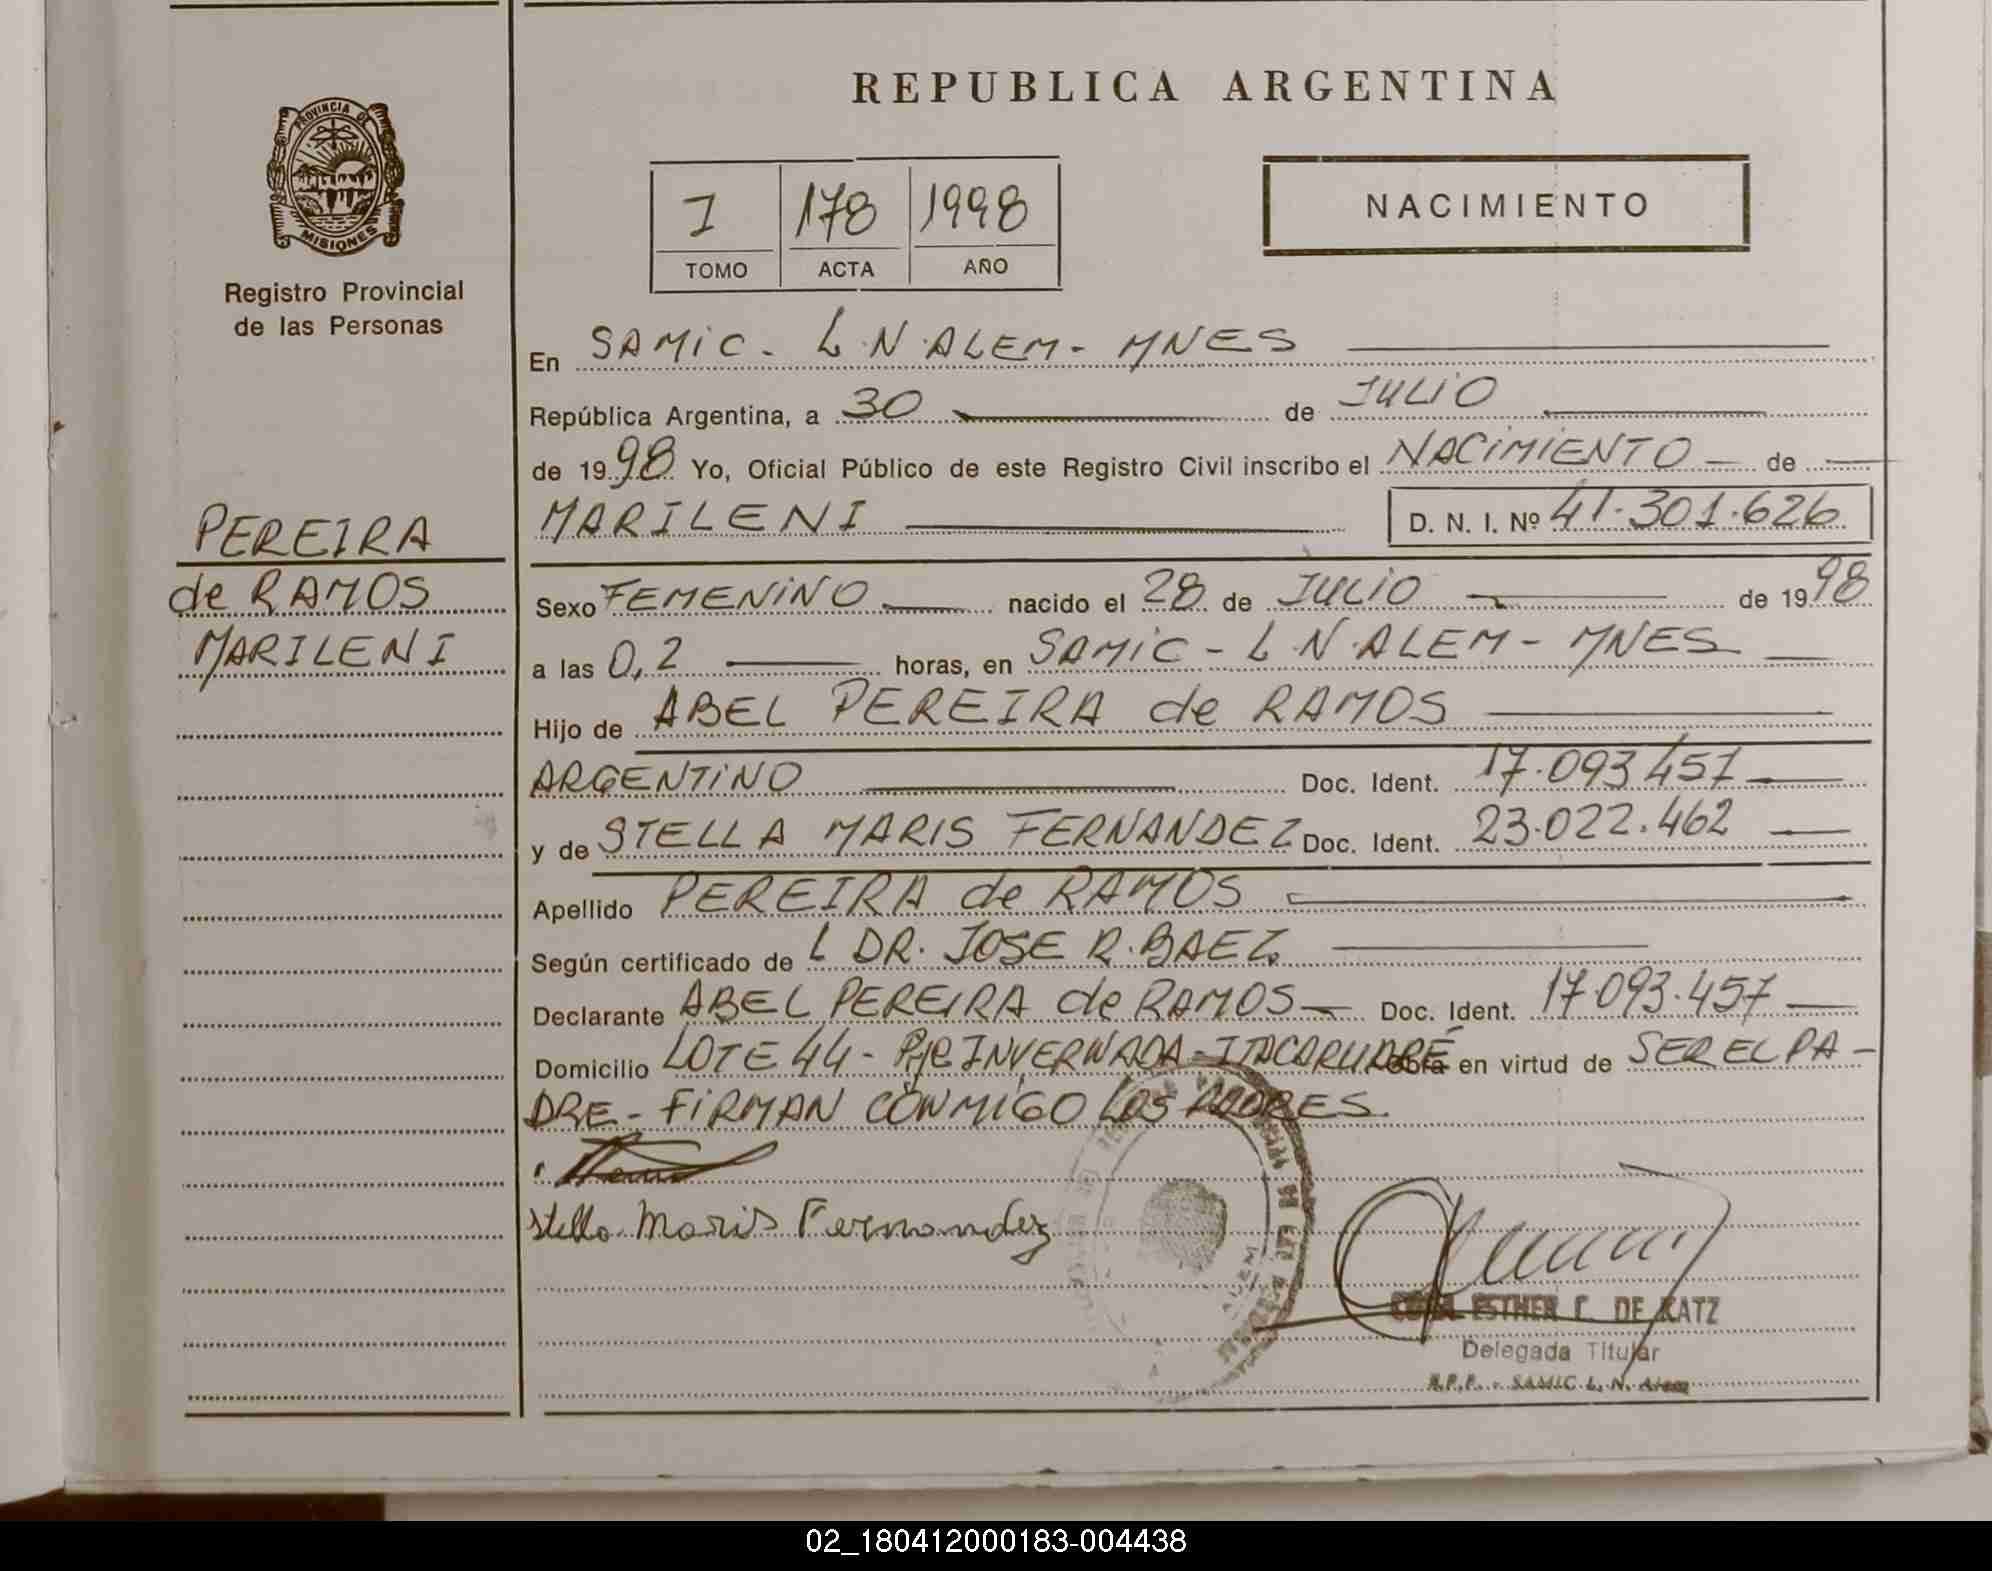 REPUBLICA ARGENTINA
PROVINCIA DE
MISIONES
Registro Provincial
de las Personas
I 178 1998
TOMO ACTA AÑO
NACIMIENTO
En SAMIC - L.N.ALEM - MNES
República Argentina, a 30 de JULIO
de 1998 Yo, Oficial Público de este Registro Civil inscribo el NACIMIENTO de
MARILENI D. N. I. Nº 41.301.626
PEREIRA
de RAMOS
MARILENI
Sexo FEMENINO nacido el 28 de JULIO de 1998
a las 0,2 horas, en SAMIC - L.N.ALEM - MNES
Hijo de ABEL PEREIRA de RAMOS
ARGENTINO Doc. Ident. 17.093.457
y de STELLA MARIS FERNANDEZ Doc. Ident. 23.022.462
Apellido PEREIRA de RAMOS
Según certificado de L DR. JOSE R. BAEZ
Declarante ABEL PEREIRA de RAMOS Doc. Ident. 17.093.457
Domicilio LOTE 44 - INVERNADA - ITACARUARÉ obra en virtud de SER EL PA-
DRE - FIRMAN CONMIGO LOS PADRES.
Stella Maris Fernandez
ESTHER C. DE KATZ
Delegada Titular
R.P.P. - SAMIC L. N. Alem
02_180412000183-004438